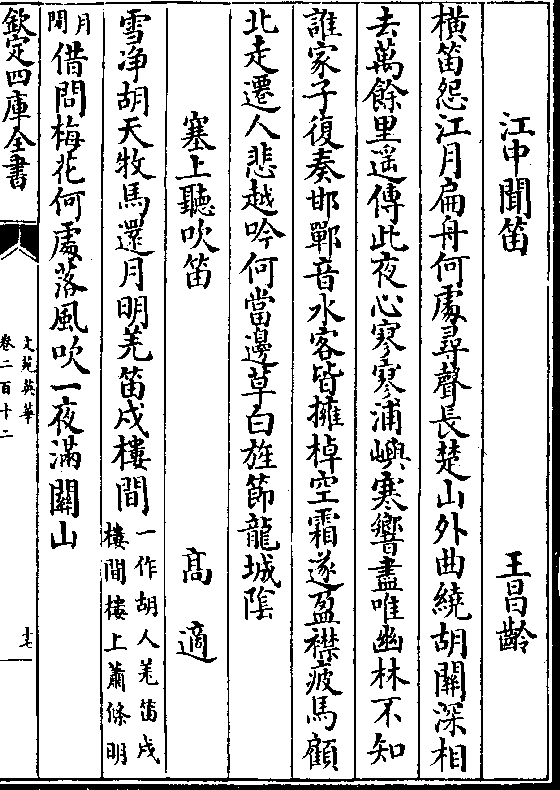 江中聞笛　王昌齡
横笛怨江月扁舟何處尋聲長楚山外曲繞胡關深相
去萬餘里遥傳此夜心寥寥浦嶼寒響盡唯幽林不知
誰家子復奏邯鄲音水客皆擁棹空霜遂盈襟疲馬顧
北走遷人悲越吟何當邊草白旌節龍城隂
塞上聽吹笛　髙適
雪净胡天牧馬還月明羌笛戍樓間
一作胡人羌笛戍
樓間樓上蕭條明
月
閒
借問梅花何處落風吹一夜滿關山
欽定四庫全書
文苑英華
卷二百十二
十七